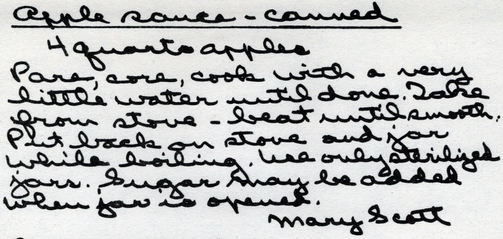 Apple sauce - canned
4 quarts apples
Pare, core, cook with a very
little water until done. Take
from stove - beat until smooth.
Put back on stove and jar
while boiling. Use only sterilized
jars. Sugar may be added
when jar is opened.
Mary Scott